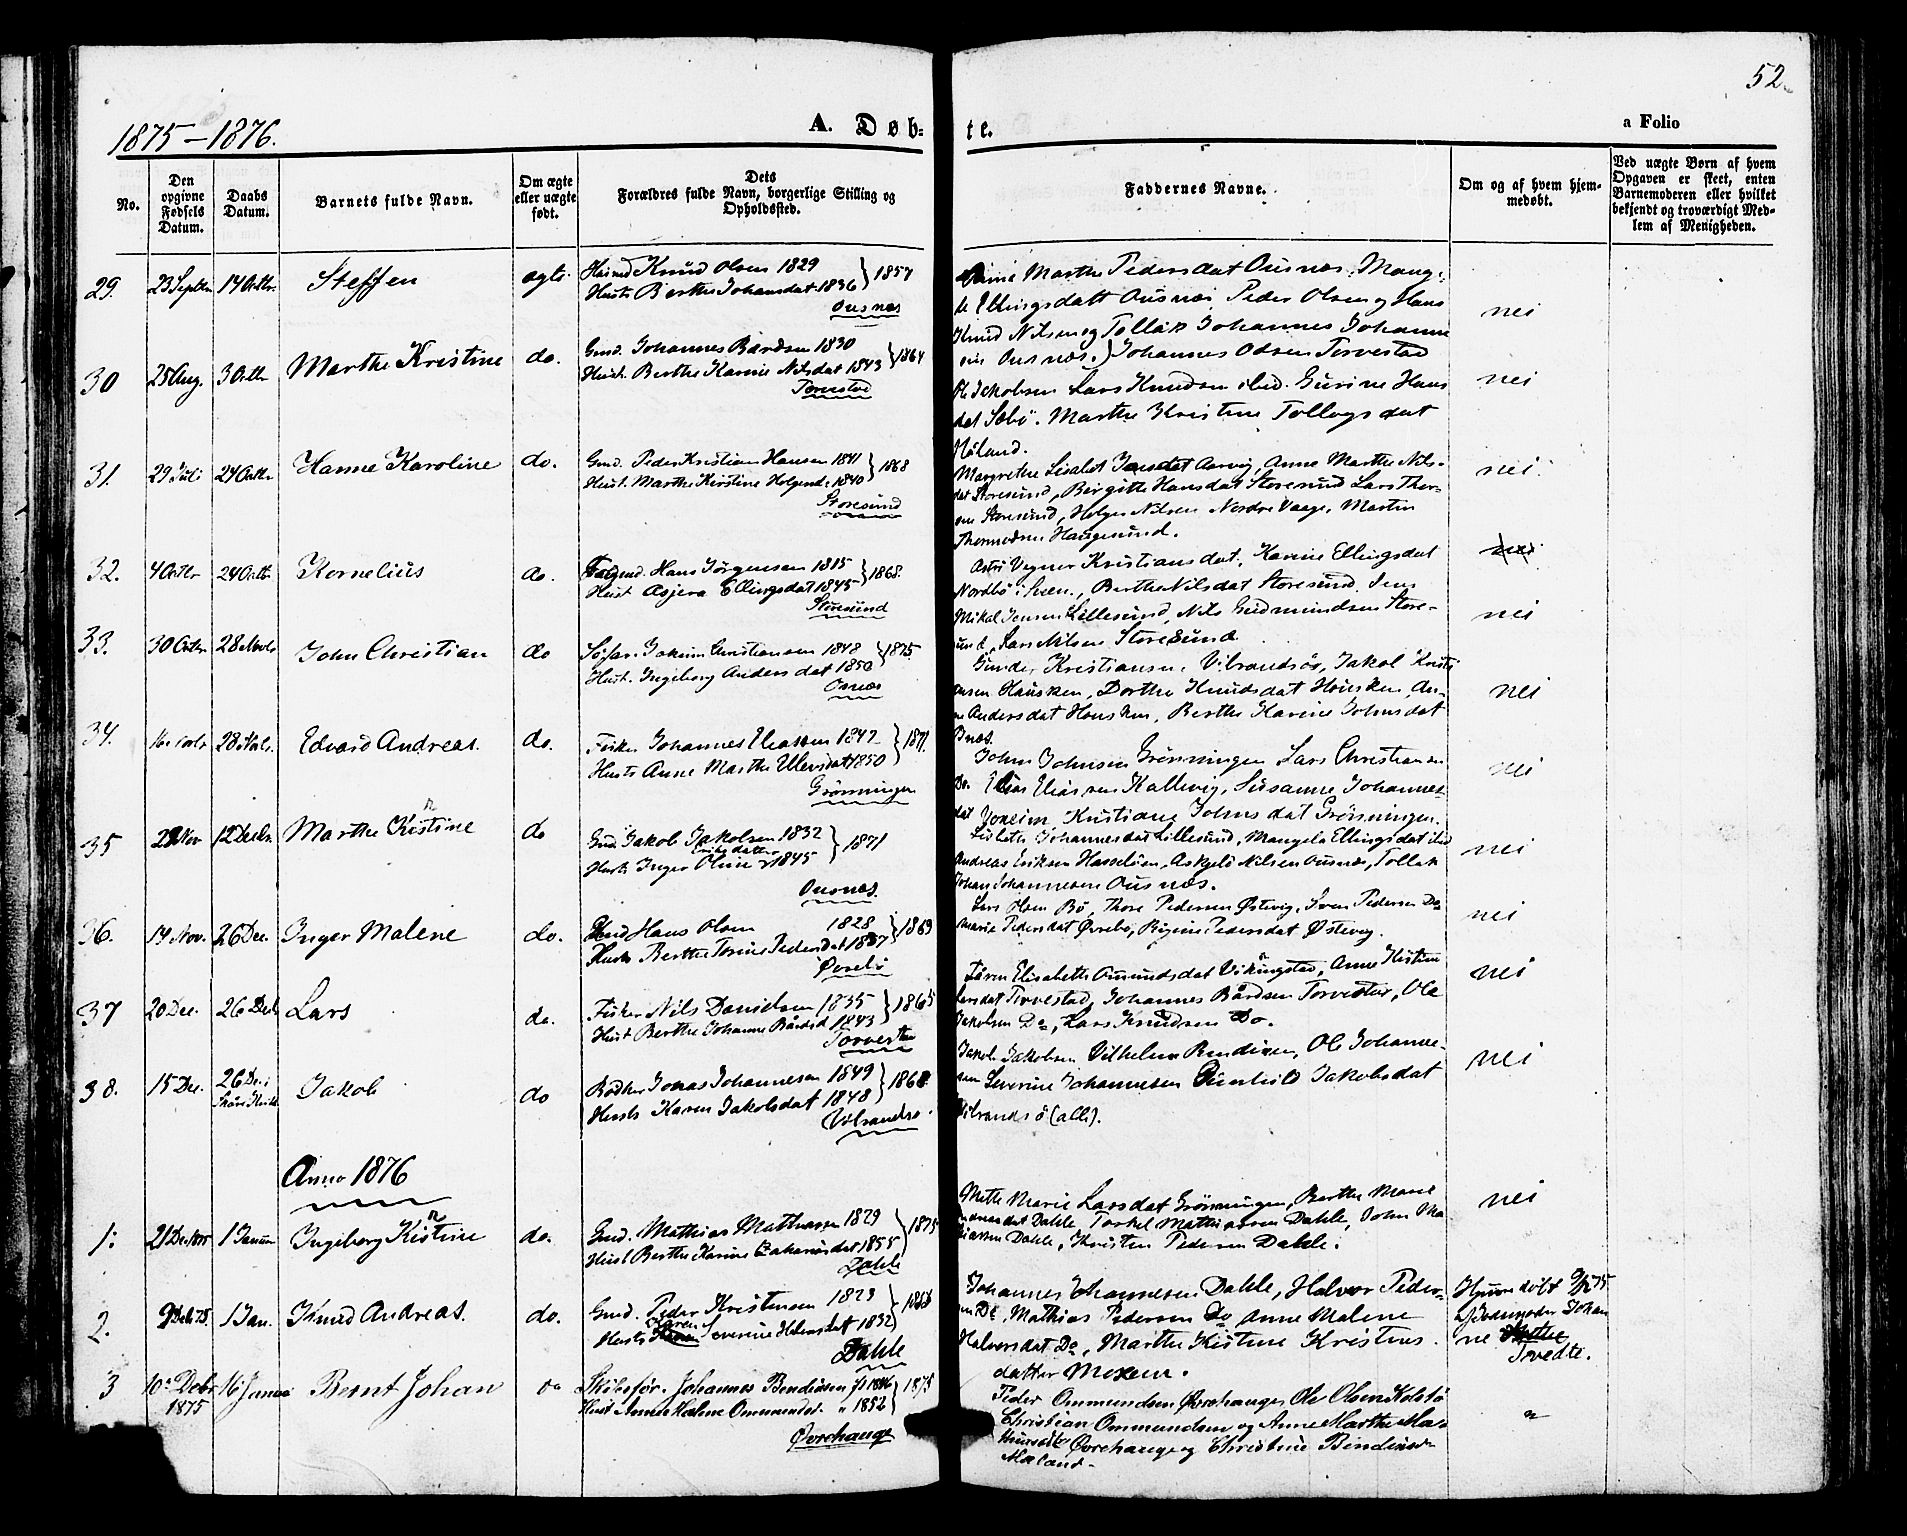 52.
1875-1876.
A. Døb-
te.
a Folio
No.
Den opgivne Fødsels Datum.
Daabs Datum.
Barnets fulde Navn.
Om ægte eller uægte født.
Dets Forældres fulde Navn, borgerlige Stilling og Opholdssted.
Faddernes Navne.
Om og af hvem hjemmedøbt.
Ved uægte Børn af hvem Opgaven er skeet, enten Barnemoderen eller hvilket bekjendt og troværdigt Medlem af Menigheden.
29. 23 Septbr 14 Octbr. Steffen ægte. Knud Olsen 1829 } 1857
Hust. Berthe Johansdat 1836
Ousnæs
Marthe Pedersdat Ousnæs, Mang-
Ellingsdatt Ousnæs, Peder Olsen og Hans
nei
Knud Nilsen og Tollak Johannes Johanne
Ousnæs.) Johannes Olsen Torvestad
30 25 Aug. 3 Octbr Marthe Kristine do. Gmd. Johannes Bårdsen 1830 } 1864
Hust. Berthe Karine Nilsdat 1843
Torvestad
Ole Jakobsen Lars Knudsen ibid. Gurine Hans
dat Sæbø. Marthe Kristine Tollagsdat
Høland.
nei
31. 29 Juli 24 Octbr Hanne Karoline do. Gmd. Peder Kristian Hansen 1841 } 1868
Hust. Marthe Kirstine Holgersd. 1840
Storesund
Margrethe Lisabet Jansdat Aarvig, Anne Marthe Nils-
dat Storesund, Birgitte Hansdat Storesund Lars Thor-
sen Storesund, Holger Nilsen Nordre Vaage, Martin
Thormodsen Haugesund.
nei
32. 4 Octbr 24 Octbr Kornelius do. Hans Jørgensen 1815 } 1868.
Hust Asjera Ellingsdat 1845
Storesund
Kristiansdat, Karine Ellingsdat
Nordbø i Sveen, Berthe Nilsdat Storesund. Jens
Mikal Jensen Lillesund, Nils Gudmundsen Store-
sund, Lars Nilsen Storesund
nei
33. 30 Octbr. 28 Novbr John Christian do Jokum Christiansen 1848 } 1875
Hust. Ingeborg Andersdat 1850
Osnæs
Gunder Kristiansen Vibrandsø, Jakob Kristi
ansen Hausken, Dorthe Knudsdat Hausken, An-
ne Andersdat Hausken, Berthe Karine Johnsdat
nei
34. 28 Novbr. Edvard Andreas. do. Fisker Johannes Eliassen 1847 } 1871.
Hust. Anne Marthe 1850
Grønningen
John Johnsen Grønningen Lars Christiansen
Do. Elias Eliassen Kallevig, Susanne Johannes-
dat Kristiane Johnsdat Grønningen.
nei
35 22 Nov 12 Decbr. Marthe Kristine do Gmd. Jakob Jakobsen 1832 } 1871
Hust. Inger Oline Eriksdatter 1845
Ousnæs.
Lisbeth Johannesdat Lillesund, Mangela Ellingsdat ibid
Andreas Eriksen Hasseløen, Askjeld Nilsen Ousnæs, Tollak
Johan Johannesen Ousnæs.
nei
36. 14 Nov. 26 Dec. Inger Malene do. Gmd Hans Olsen 1828 } 1869
Hust. Berthe Torine Pedersdat 1837
Øvrebø
Lars Olsen Bø, Thore Pedersen Østevig, Sven Pedersen Do
Marie Pedersdat Øvrebø, Pedersdat Østevig.
nei
37 20 Dec. 26 Decbr Lars do. Fisker Nils Danielsen 1835 } 1865
Hust Berthe Johanne Bårdsd 1843
Torvestad
Elisabeth Amundsdat Vikingstad, Anne Kistine
Larsdat Torvestad, Johannes Bårdsen Torvestad, Ole
Jakobsen Do, Lars Knudsen Do.
nei
38. 15 Dec. 26 Dec. i Jakob do Bødker Jonas Johannesen 1849 } 1868
Hust. Karen Jakobsdat 1848
Vibrandsø.
Jakob Jakobsen Vilhelm Bendixen, Ole Johanne-
sen Severine Johannesen Gunhild Jakobsdat
Vibrandsø (alle).
nei
Anno 1876
1: 21 Dec 1875 1 Januar Ingeborg Kristine do. Gmd. Mathias Mathiassen 1829 } 1875
Hust Berthe Karine Zakariasdat 1855
Dahle
Mette Marie Larsdat Grønningen, Berthe Marie
Dahle, Torkel Mathiassen Dahle, John Ma
thiassen Dahle, Kristen Pedersen Dahle.
nei
2. 9 Decb 75. 1 Jan. Knud Andreas. do. Gmd. Peder Kristensen 1823 } 1858
Hust. Karen Severine Hansdat 1832
Dahle
Johannes Johannesen Dahle, Halvor Peder-
sen Do, Mathias Pedersen Do Anne Malene
Halvorsdat Do, Marthe Kistine Kristens
datter Moxem.
Hjemmedøbt 9/12 75
af Jordemoder Johan
ne
3 10 Decbr 1875 16 Januar Bernt Johan do Skibsfør. Johannes Bendixen f. 1846 } 1875
Hust Anne Malene Ommundsd. " 1852
Øvrehauge
Peder Ommundsen Øvrehauge, Ole Olsen Kolstø
Christian Ommundsen og Anne Marthe
Øvrehauge og Christine Bendixsd.
Høland.
"